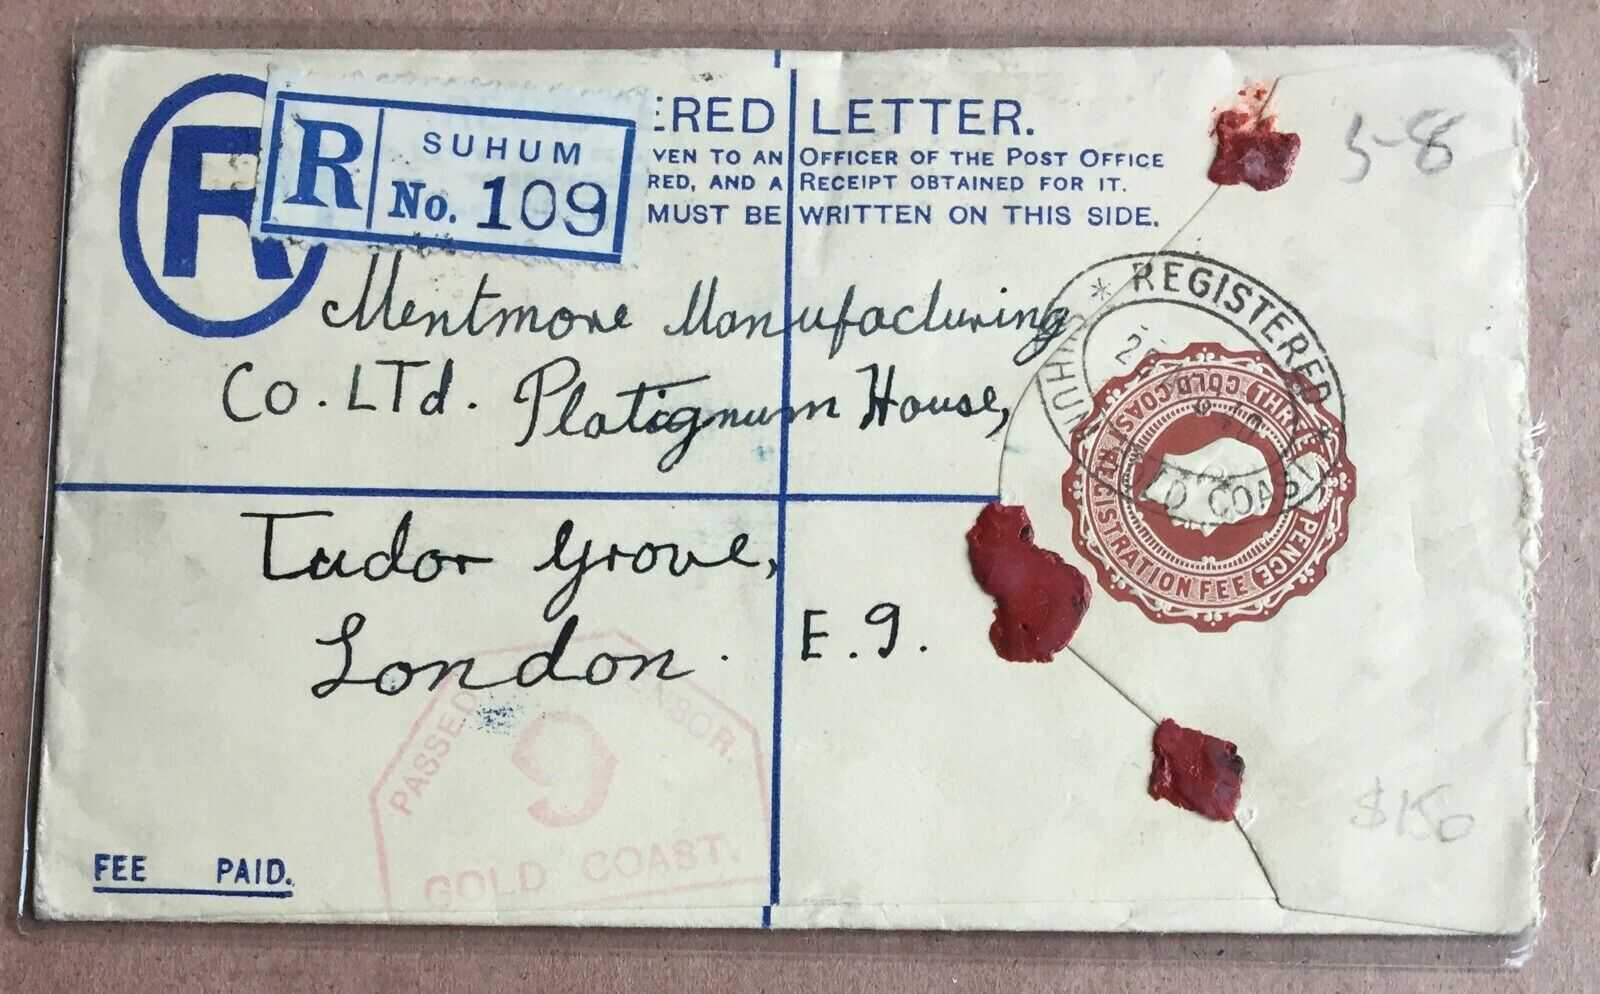 R SUHUM
No. 109
ERED LETTER.
VEN TO AN OFFICER OF THE POST OFFICE
RED, AND A RECEIPT OBTAINED FOR IT.
MUST BE WRITTEN ON THIS SIDE.
R
5-8
Mentmore Manufacturing
Co. LTd. Platignum House,
Tudor Grove,
London. E.9.
* REGISTERED *
SUHUM
GOLD COAST
GOLD COAST REGISTRATION FEE
THREE PENCE
PASSED
9
GOLD COAST.
FEE PAID.
$150